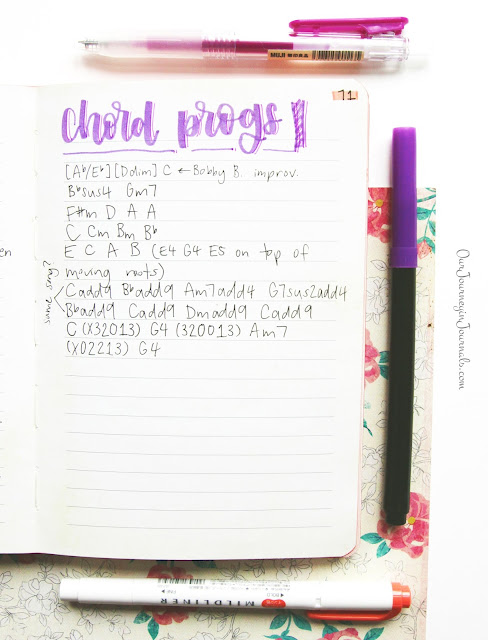 MUJI 無印良品
71
chord progs 1
[Ab/Eb] [Ddim] C ← Bobby B. improv.
Bbsus4 Gm7
F#m D A A
C Cm Bm Bb
E C A B (E4 G4 E5 on top of
moving roots)
same song?
Cadd9 Bbadd9 Am7add4 G7sus2add4
Bbadd9 Cadd9 Dmadd9 Cadd9
C (X32013) G4 (320013) Am7
(X02213) G4
en
OurJourneyinJournals.com
MILDLINER